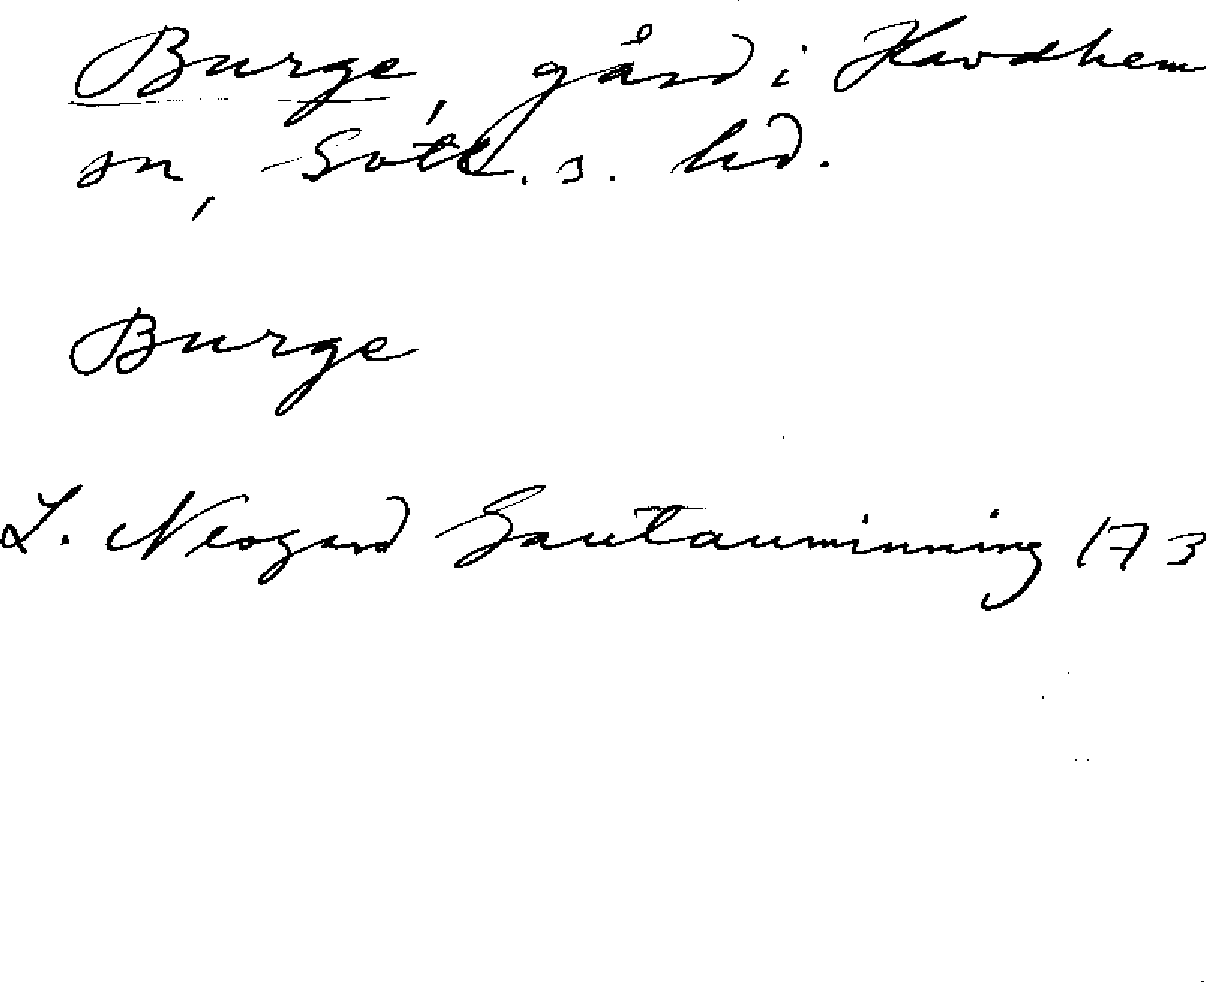 Burge, gård i Havdhem
sn, Gotl. s. hd.
Burge
L. Neogard Gautauminning 173